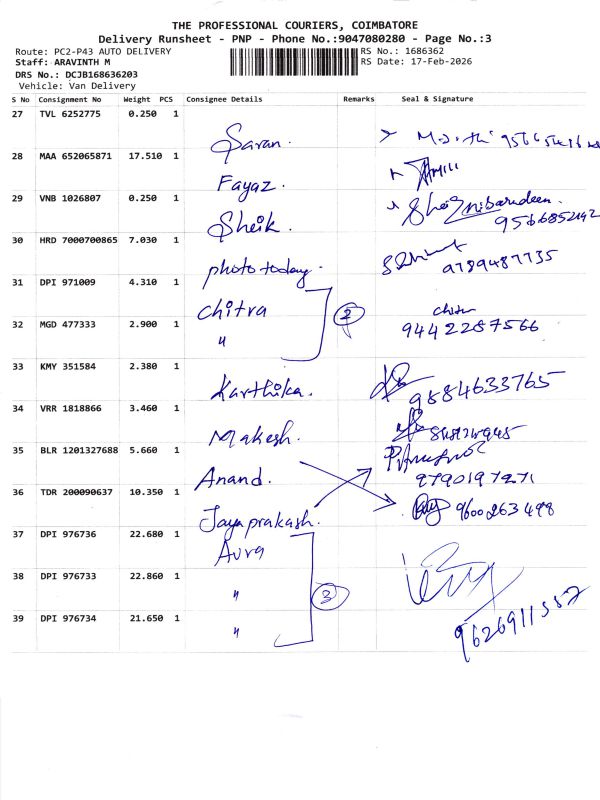 THE PROFESSIONAL COURIERS, COIMBATORE
Delivery Runsheet - PNP - Phone No.:9047080280 - Page No.:3
Route: PC2-P43 AUTO DELIVERY RS No.: 1686362
Staff: ARAVINTH M RS Date: 17-Feb-2026
DRS No.: DCJB168636203
Vehicle: Van Delivery
S No Consignment No Weight PCS Consignee Details Remarks Seal & Signature
27 TVL 6252775 0.250 1 Saran.
28 MAA 652065871 17.510 1 Fayaz.
29 VNB 1026807 0.250 1 Sheik 9566852142
30 HRD 7000700865 7.030 1 phototoday. 9789487735
31 DPI 971009 4.310 1 Chitra 2
32 MGD 477333 2.900 1 " 9442287566
33 KMY 351584 2.380 1 Karthika. 9884633765
34 VRR 1818866 3.460 1 Makesh.
35 BLR 1201327688 5.660 1 Anand. 9790197271
36 TDR 200090637 10.350 1 Jayaprakash. 9600263498
37 DPI 976736 22.680 1 Avra
38 DPI 976733 22.860 1 " 3
39 DPI 976734 21.650 1 " 9626911557